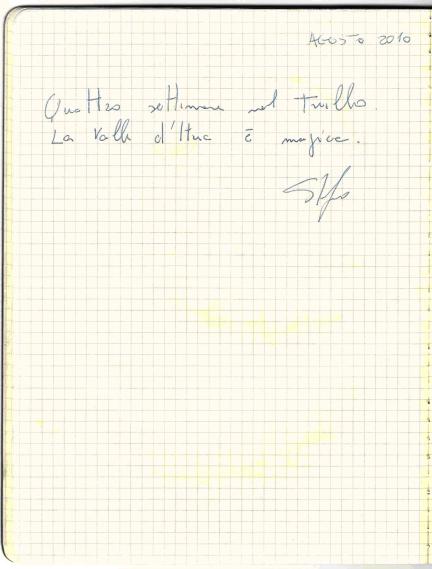 AGOSTO 2010
Quattro settimane nel trullo.
La Valle d'Itria è magica.